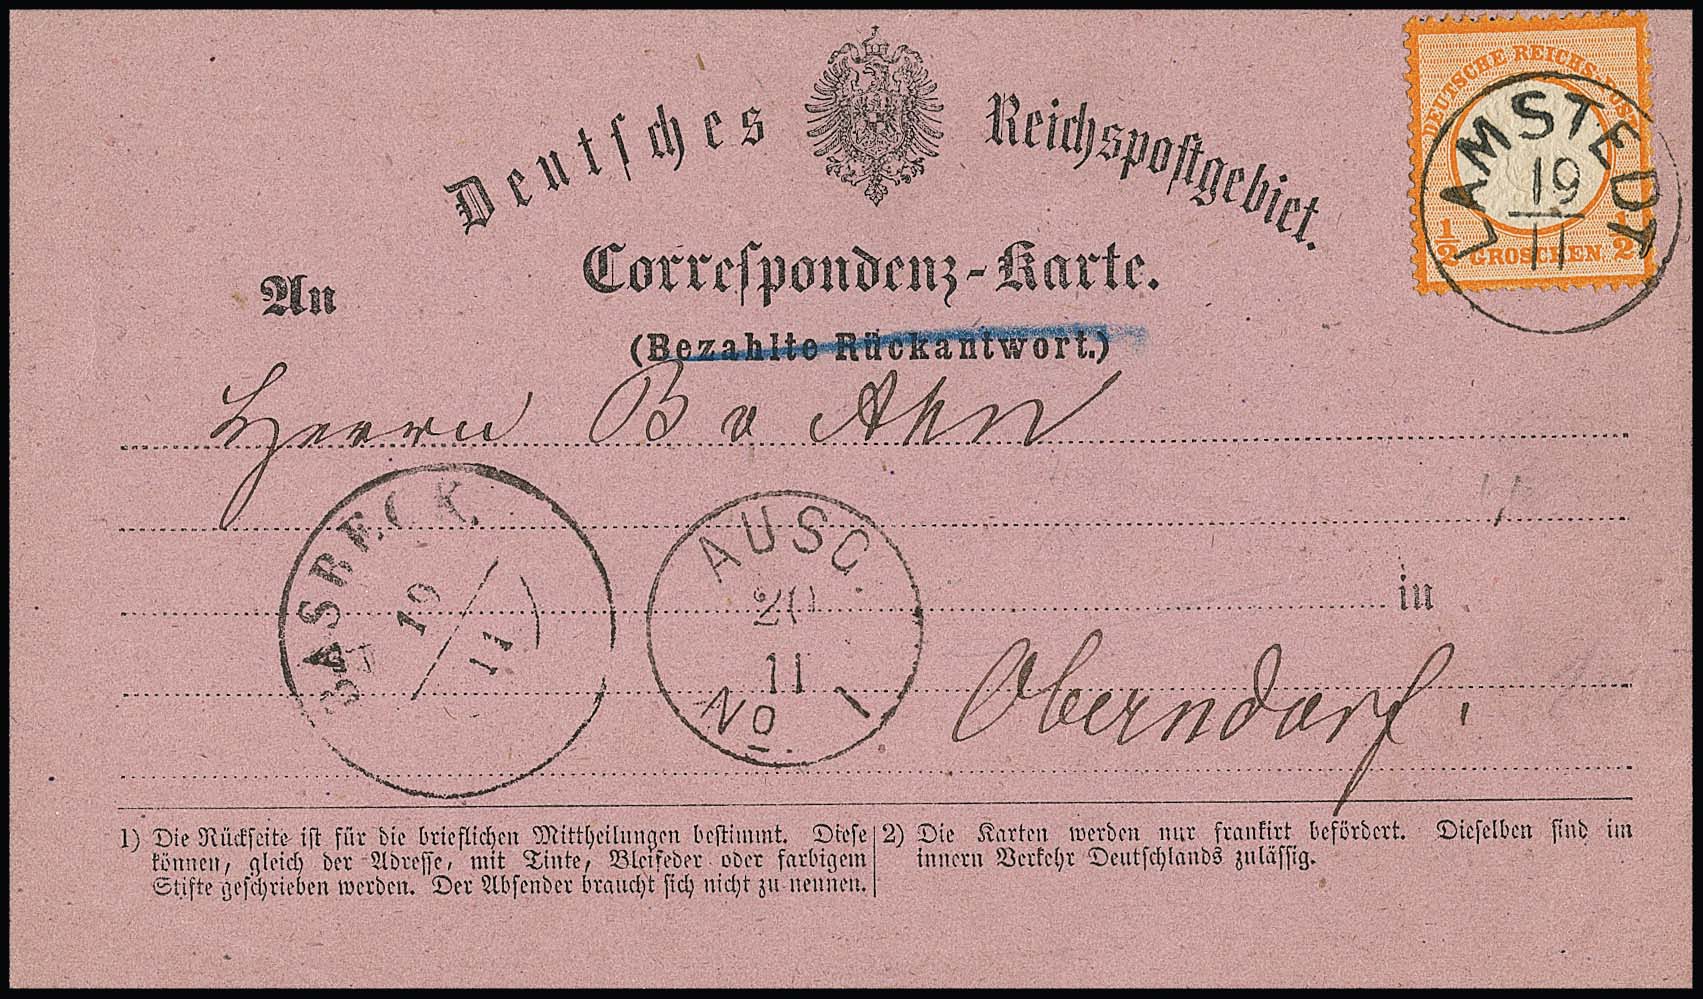 Deutsches Reichspostgebiet.
DEUTSCHE REICHS-POST
½ GROSCHEN ½
LAMSTEDT
19
11
Correspondenz-Karte.
An
(Bezahlte Rückantwort.)
Herrn B v Ahn
BASBECK.
19
11
AUSG.
20
11
No 1
in
Oberndorf.
1) Die Rückseite ist für die brieflichen Mittheilungen bestimmt. Diese
können, gleich der Adresse, mit Tinte, Bleifeder oder farbigem
Stifte geschrieben werden. Der Absender braucht sich nicht zu nennen.
2) Die Karten werden nur frankirt befördert. Dieselben sind im
innern Verkehr Deutschlands zulässig.